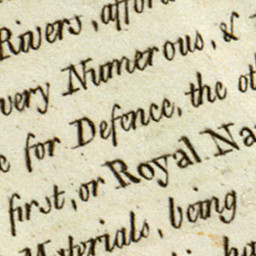 Rivers, affor
very Numerous, &
for Defence, the ot
first, or Royal Na
Materials, being